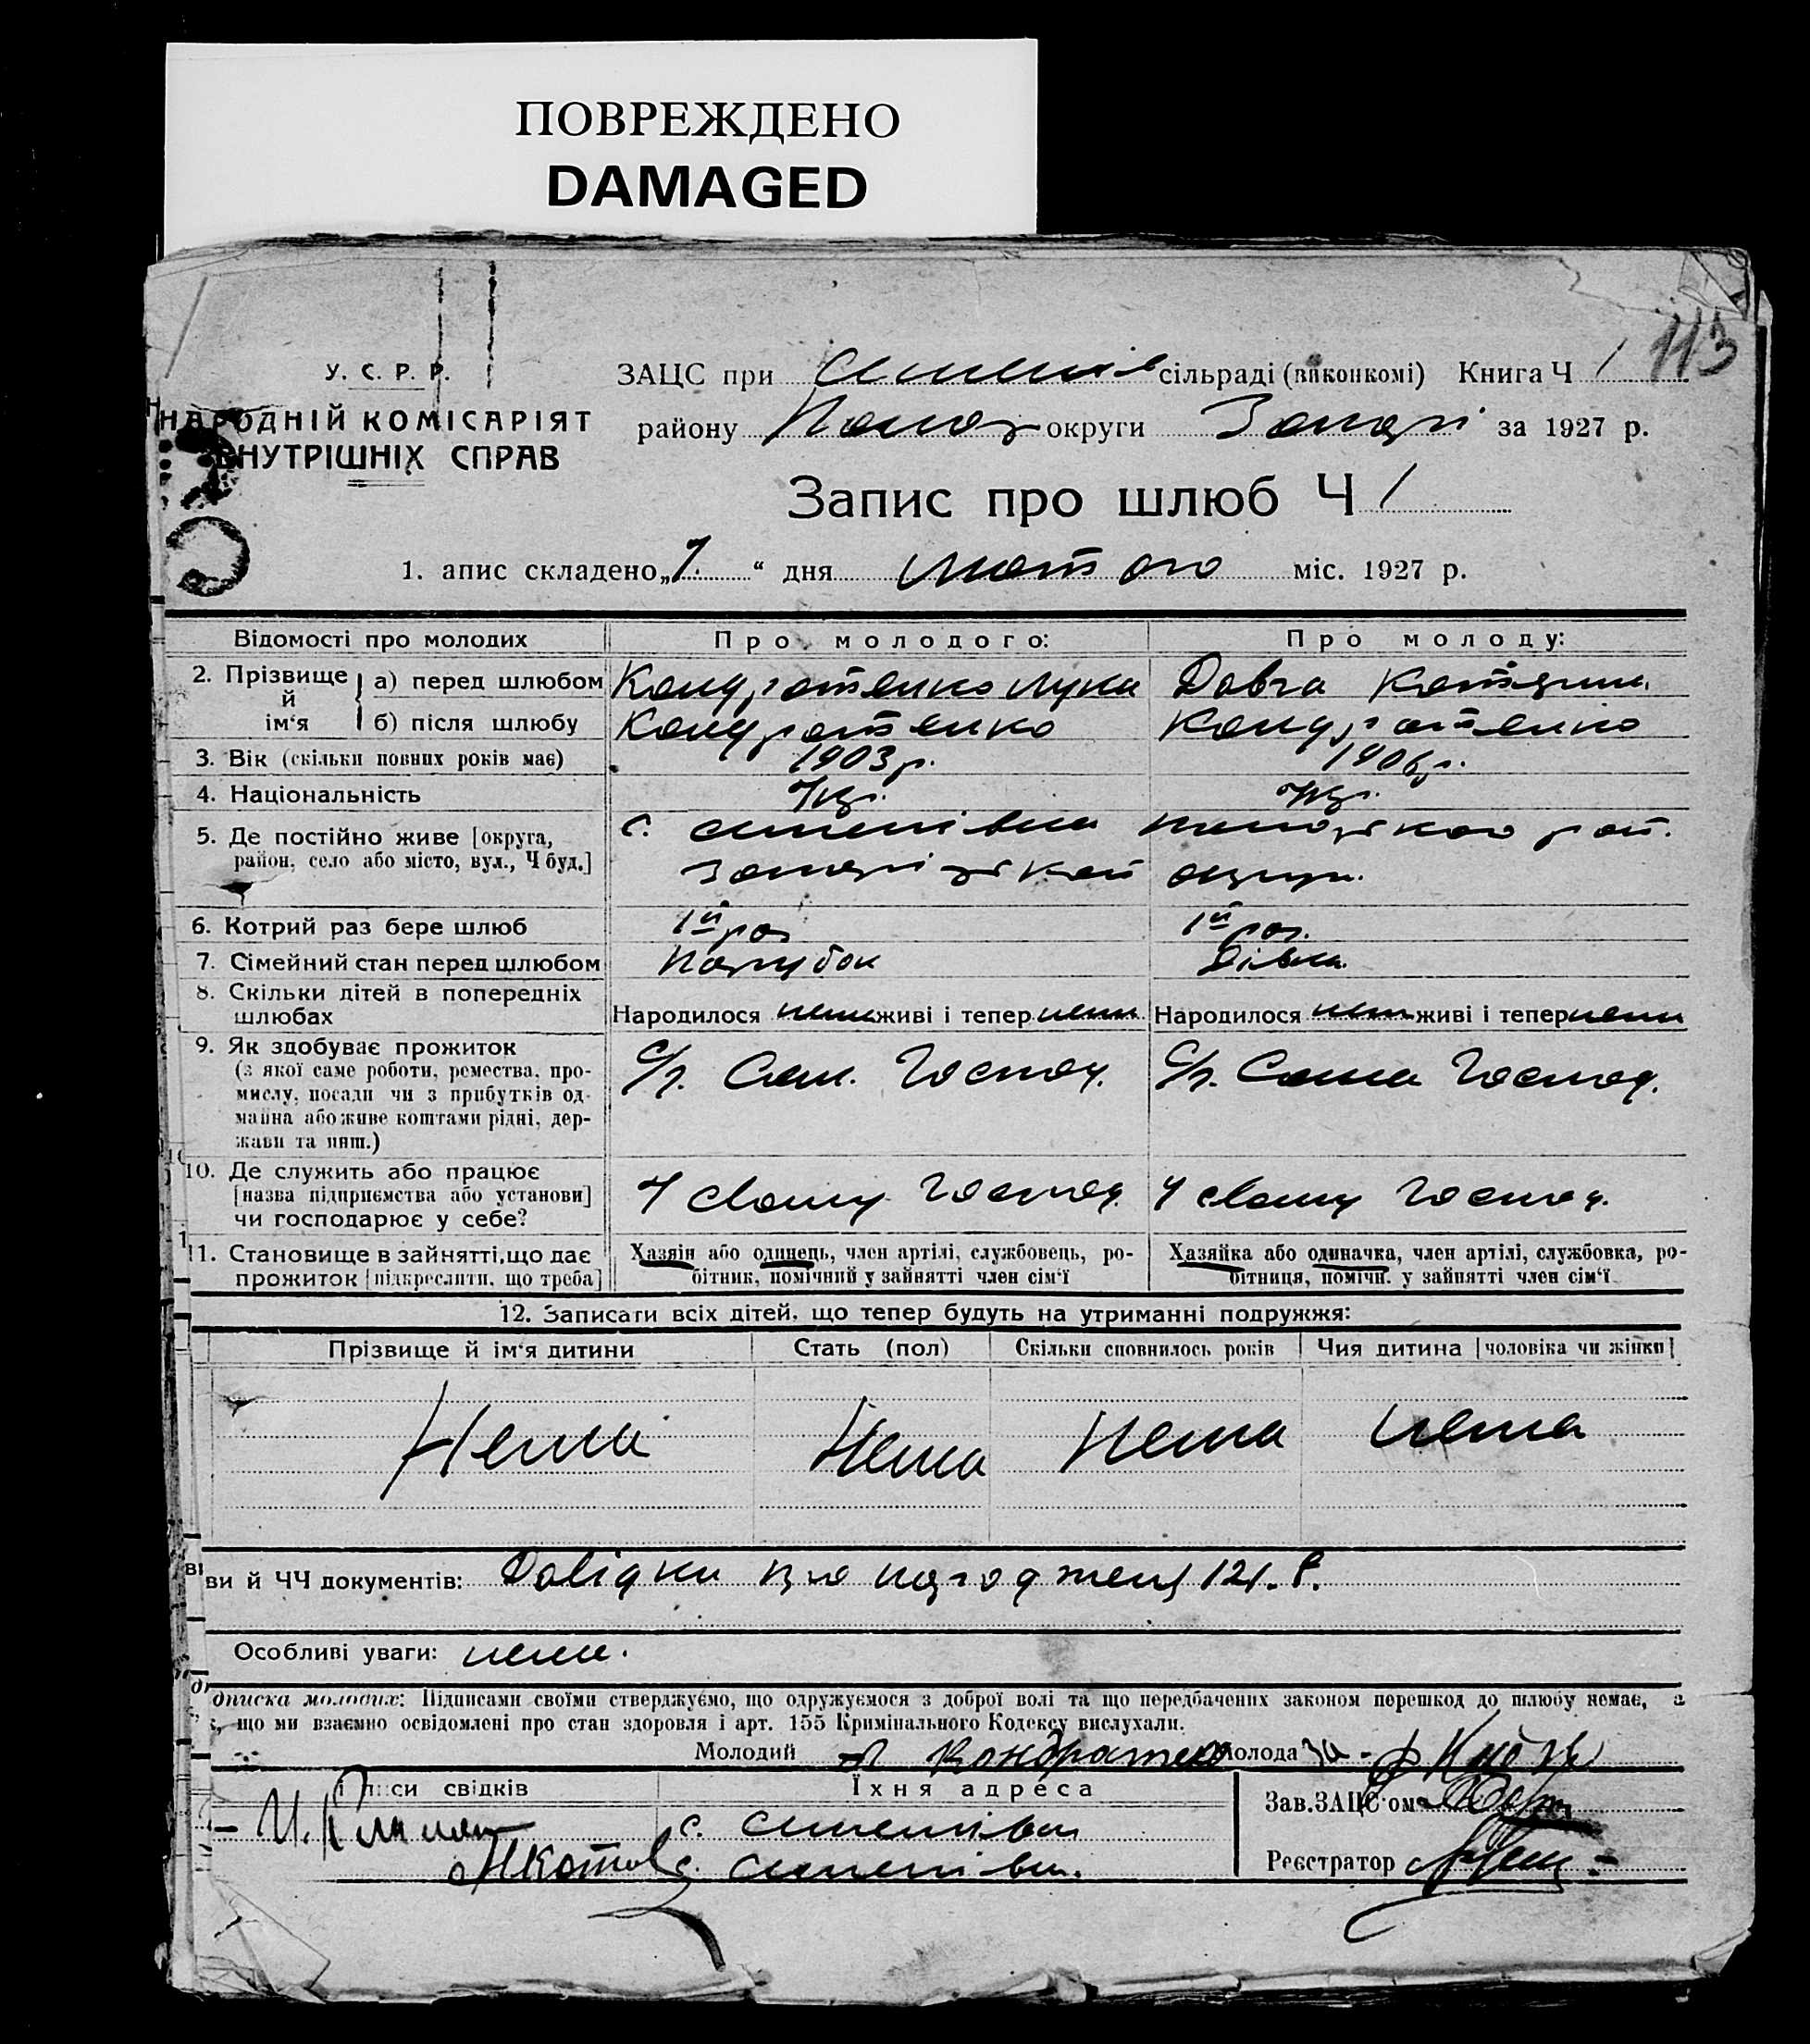 ПОВРЕЖДЕНО
DAMAGED
113
У. С. Р. Р.
НАРОДНІЙ КОМІСАРІЯТ
ВНУТРІШНІХ СПРАВ
ЗАЦС при сільраді (виконкомі) Книга Ч 1
району округи за 1927 р.
Запис про шлюб Ч 1
1. апис складено „7.“ дня лютого міс. 1927 р.
Відомості про молодих Про молодого: Про молоду:
2. Прізвище й ім‘я а) перед шлюбом Кондратенко Лука Довга Катерина
б) після шлюбу Кондратенко Кондратенко
3. Вік (скільки повних років має) 1903 р. 1906 р.
4. Національність Укр. Укр.
5. Де постійно живе [округа, район, село або місто, вул., Ч буд.] с.
6. Котрий раз бере шлюб 1й раз 1й раз.
7. Сімейний стан перед шлюбом Парубок Дівка
8. Скільки дітей в попередніх шлюбах Народилося нема живі і тепер нема Народилося нема живі і тепер нема
9. Як здобуває прожиток
(з якої саме роботи, ремества, про-
мислу, посади чи з прибутків од
майна або живе коштами рідні, дер-
жави та инш.)
С/г. Сам. Господ. С/г. Сама Господ.
10. Де служить або працює
[назва підприємства або установи]
чи господарює у себе?
У свому Господ. У свому Господ.
11. Становище в зайнятті, що дає
прожиток [підкреслити, що треба]
Хазяїн або одинець, член артілі, службовець, ро-
бітник, помічний у зайнятті член сім‘ї
Хазяйка або одиначка, член артілі, службовка, ро-
бітниця, помічн. у зайнятті член сім‘ї
12. Записати всіх дітей, що тепер будуть на утриманні подружжя:
Прізвище й ім‘я дитини Стать (пол) Скільки сповнилось років Чия дитина [чоловіка чи жінки]
Нема Нема Нема нема
ви й ЧЧ документів: Довідки про
Особливі уваги: нема.
дписка молодих: Підписами своїми стверджуємо, що одружуємося з доброї волі та що передбачених законом перешкод до шлюбу немає, а
, що ми взаємно освідомлені про стан здоровля і арт. 155 Кримінального Кодексу вислухали.
Молодий Кондратенко Молода за-
і писи свідків Їхня адреса
Зав. ЗАЦС‘ом
с.
с.
Реєстратор